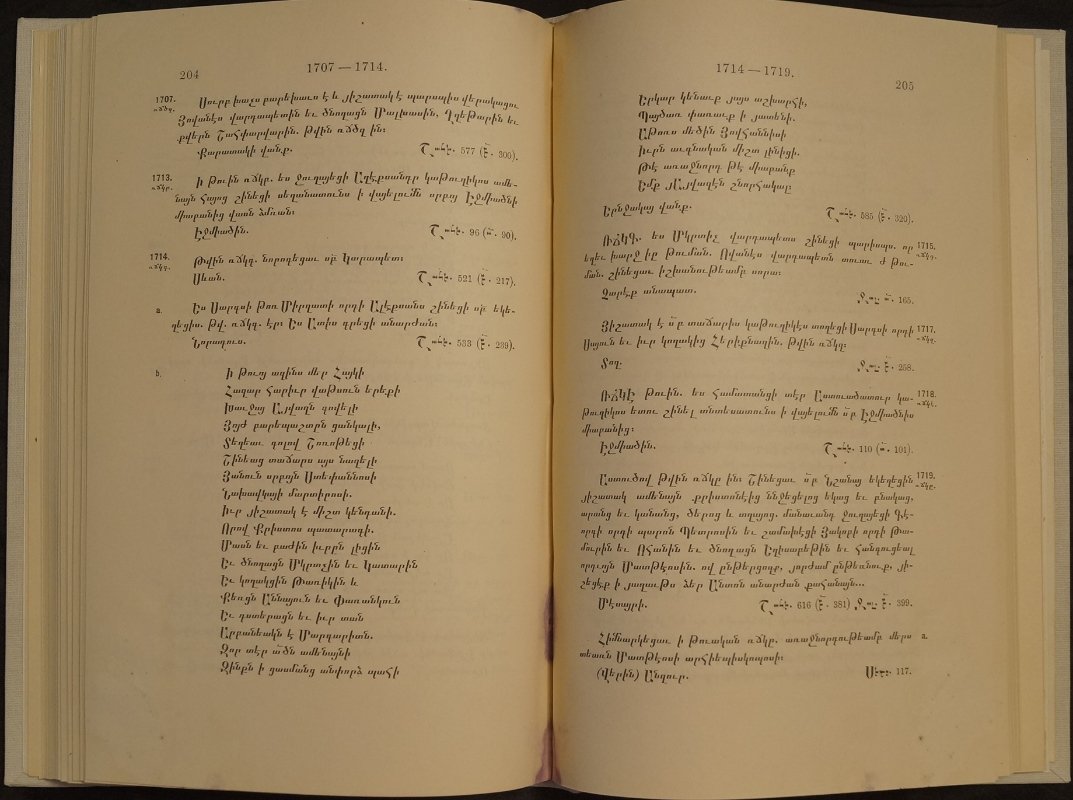 204
1707 — 1714.
1707. Սուրբ խաչս բարեխաւս է և յիշատակ է պարսպիս վերակացու
ռճծզ. Յովանէս վարդապետին եւ ծնողացն Մալխասին, Ղղեթարին եւ
քվերն Շահփարվարին. թվին ռճծզ ին:
Քարատակի վանք. 577 (300).
1713. Ի թուին ռճկբ. ես ջուղայեցի Աղէքսանդր կաթուղիկոս ամե-
ռճկբ. նայն Հայոց շինեցի սեղանատունս ի վայելումն սրբոյ Էջմիածնի
միաբանից վասն ձմռան:
Էջմիածին. 96 (90).
1714. Թվին ռճկգ. նորոգեցաւ սբ Կարապետ:
ռճկգ. Սևան. 521 (217).
a. Ես Սարգսի թոռ Միրզատի որդի Ալէքսանս շինեցի սբ եկե-
ղեցիս. թվ. ռճկգ. էր: Ես Ատիս գրեցի անարժան:
Նորադուս. 533 (239).
b. Ի թուոյ ազինս մեր Հայկի
Հազար հարիւր վաթսուն երեքի
Խաւջայ Այվազն գովելի
Յոյժ բարեպաշտրն ցանկալի,
Տեղեաւ գոլով Շոռոթեցի
Շինեաց տաճարս այս նազելի
Յանուն սրբոյն Ստեփաննոսի
Նախավկայի մարտիրոսի.
Իւր յիշատակ է միշտ կենդանի.
Որով Քրիստոս պատարագի.
Մասն եւ բաժին իւրքն լիցին
Եւ ծնողացն Մկրտչին եւ Կատարին
Եւ կողակցին Թառիկին և
Քեռցն Աննայուն եւ Փառանկուն
Եւ դստերացն եւ իւր տան
Արբանեակն է Մարգարիտն.
Զոր տէր ած ծն ամենայնի
Զինքն ի ցասմանց անփորձ պահի
1714 — 1719.
205
Երկար կենաւք յայս աշխարհի,
Պայծառ փառաւք ի յատենի.
Աթոռս մեծին Յովհաննիսի
Իւրն աւգնական միշտ լինիցի.
Թէ առաջնորդ թէ միաբանք
Եմք յԱյվազէն շնորհակալ:
Երնջակայ վանք. 585 (320).
ՌՃԿԳ. ես Մկրտիչ վարդապետս շինեցի պարիսպս. որ 1715.
եղեւ խարջ իբ թուման. Ովանէս վարդապետն տուաւ ժ թու- ռճկդ.
ման. շինեցաւ իշխանութեամբ սորա:
Զարէք անապատ. 165.
Յիշատակ է սբ տաճարիս կաթուղիկէս տողեցի Սարգսի որդի 1717.
Սայուն եւ իւր կողակից Հերիքնազին. թվին ռճկզ: ռճկզ.
Տող. 258.
ՌՃԿԷ թուին. ես Համատանցի տէր Աստուածատուր կա- 1718.
թուղիկոս ետու շինել տնտեսատունս ի վայելումն սբ Էջմիածնիս ռճկէ.
միաբանից:
Էջմիածին. 110 (101).
Աստուծով թվին ռճկը ին: Շինեցաւ սբ Նշանայ եկեղեցին 1719.
յիշատակ ամենայն քրիստոնէից ննջեցելոց եկաց եւ բնակաց, ռճկը.
արանց եւ կանանց, ծերոց և տղայոց. մանաւանդ ջուղայեցի Գէ-
որգի որդի պարոն Պետրոսին եւ շամախեցի Յակոբի որդի Թա-
մուրին եւ Ոհանին եւ ծնողացն Եղիսաբեթին եւ Հանգուցեալ
որդւոյն Մատթէոսին. ով ընթերցողք, յորժամ ընթեռնուք, յի-
շեցէք ի յաղաւթս ձեր Անտոն անարժան քահանայն...
Մէսայրի. 616 (381) 399.
Հիմնարկեցաւ ի թուական ռճկը. առաջնորդութեամբ մերս a.
տեառն Մատթէոսի արհիեպիսկոպոսի:
(Վերին) Անզուր. 117.